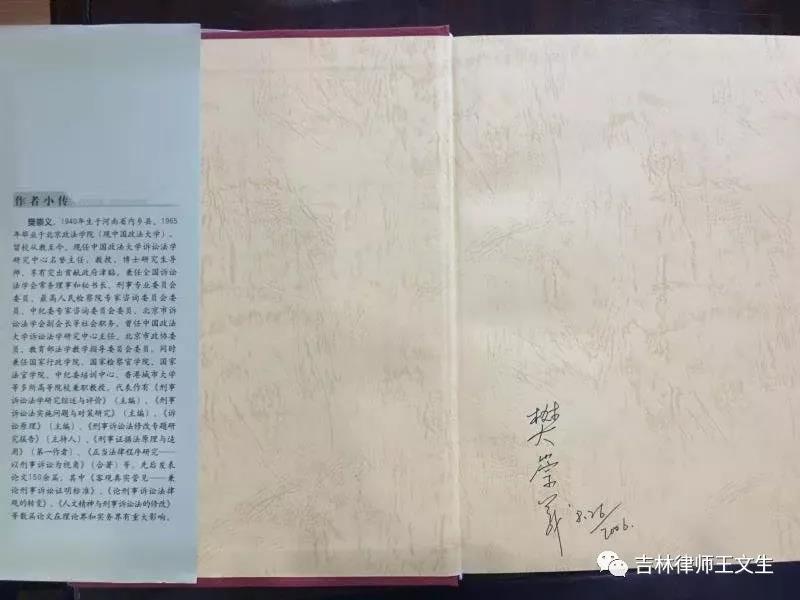 作者小传
樊崇义，1940年生于河南省内乡县。1965
年毕业于北京政法学院（现中国政法大学），
留校从教至今。现任中国政法大学诉讼法学
研究中心名誉主任，教授，博士研究生导
师，享有突出贡献政府津贴。兼任全国诉讼
法学会常务理事和秘书长、刑事专业委员会
委员，最高人民检察院专家咨询委员会委
员，中纪委专家咨询委员会委员，北京市诉
讼法学会副会长等社会职务。曾任中国政法
大学诉讼法学研究中心主任，北京市政协委
员，教育部法学教学指导委员会委员，同时
兼任国家行政学院、国家检察官学院、国家
法官学院、中纪委培训中心、香港城市大学
等多所高等院校兼职教授。代表作有《刑事
诉讼法学研究综述与评价》（主编）、《刑事
诉讼法实施问题与对策研究》（主编）、《诉
讼原理》（主编）、《刑事诉讼法修改专题研
究报告》（主持人）、《刑事证据法原理与适
用》（第一作者）、《正当法律程序研究——
以刑事诉讼为视角》（合著）等。先后发表
论文150余篇，其中《客观真实管见——兼
论刑事诉讼证明标准》、《论刑事诉讼法律
观的转变》、《人文精神与刑事诉讼法的修改》
等数篇论文在理论界和实务界有重大影响。
樊崇义
8.26/2006.
吉林律师王文生